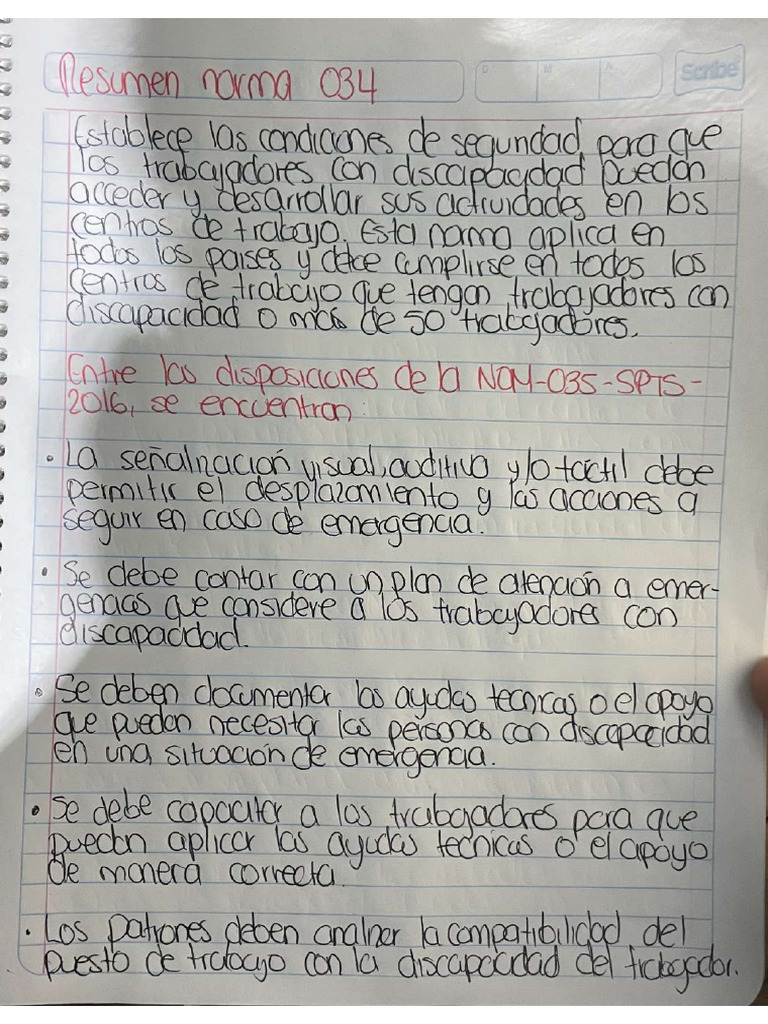 Resumen norma 034
Scribe
D M A
Establece las condiciones de seguridad para que
los trabajadores con discapacidad puedan
acceder y desarrollar sus actividades en los
centros de trabajo. Esta norma aplica en
todos los paises y debe cumplirse en todos los
centros de trabajo que tengan trabajadores con
discapacidad o más de 50 trabajadores.
Entre las disposiciones de la NOM-035-SPTS-
2016, se encuentran:
• La señalización visual, auditiva y/o táctil debe
permitir el desplazamiento y las acciones a
seguir en caso de emergencia.
• Se debe contar con un plan de atención a emer-
gencias que considere a los trabajadores con
discapacidad.
• Se deben documentar las ayudas tecnicas o el apoyo
que puedan necesitar las personas con discapacidad
en una situación de emergencia.
• Se debe capacitar a los trabajadores para que
puedan aplicar las ayudas tecnicas o el apoyo
de manera correcta.
• Los patrones deben analizar la compatibilidad del
puesto de trabajo con la discapacidad del trabajador.